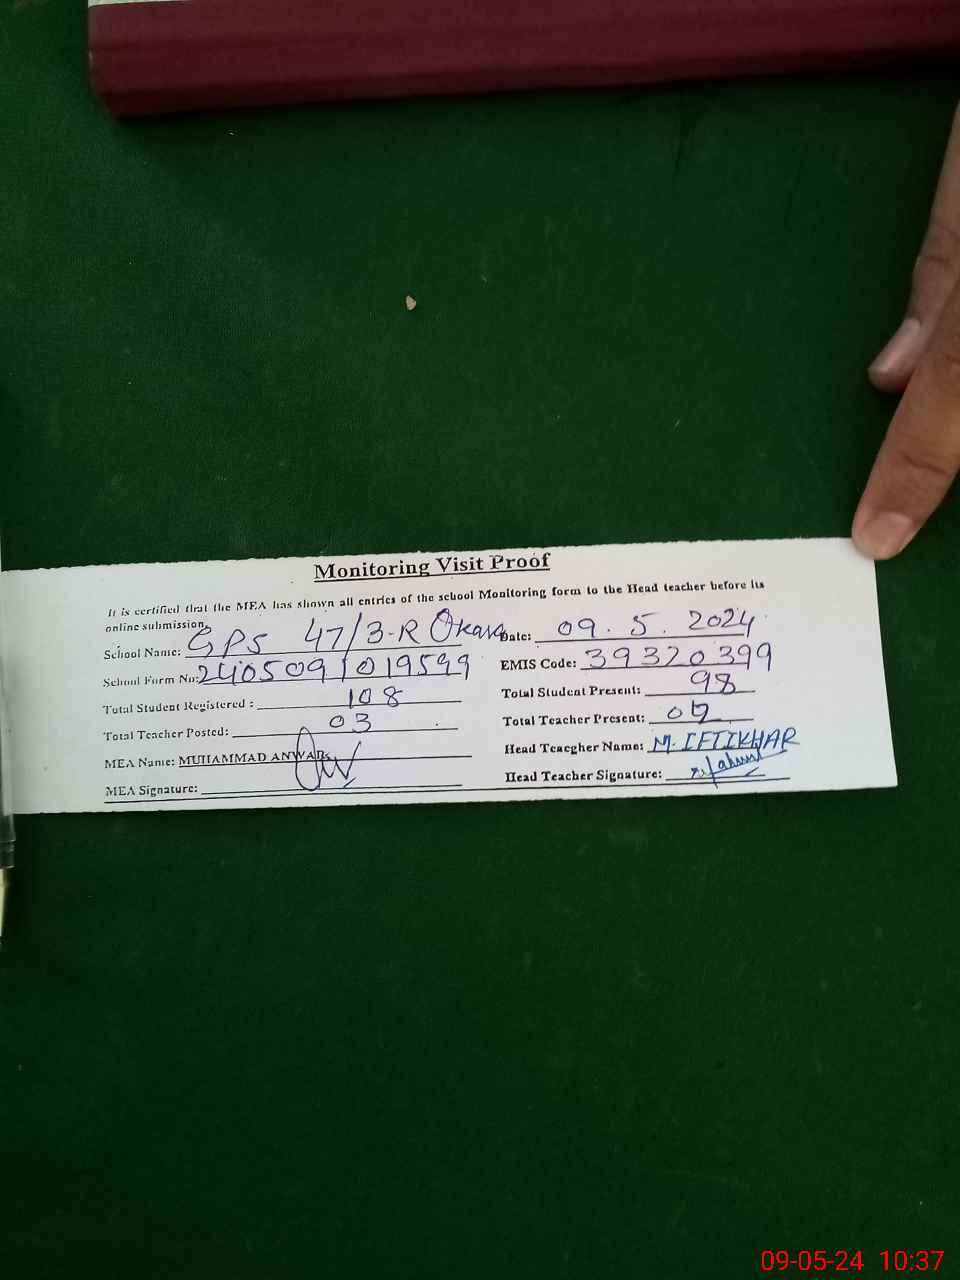 Monitoring Visit Proof
It is certified that the MEA has shown all entries of the school Monitoring form to the Head teacher before its
online submission.
School Name: GPS 47/3-R Okara Date: 09.5.2024
School Form No: 2405091019599 EMIS Code: 39320399
Total Student Registered : 108 Total Student Present: 98
Total Teacher Posted: 03 Total Teacher Present:
MEA Name: MUHAMMAD ANWAR Head Teacgher Name: M. IFTIKHAR
MEA Signature: Head Teacher Signature:
09-05-24 10:37